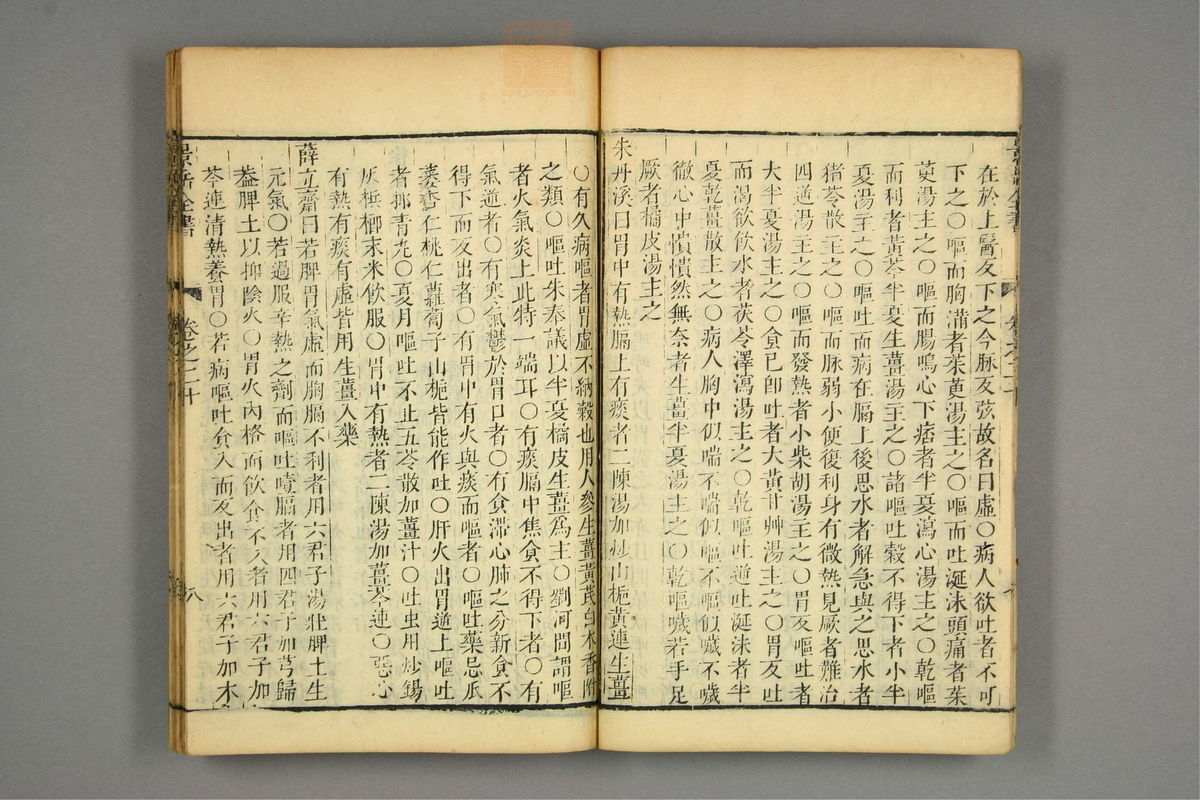 在於上醫反下之今脉反弦故名曰虛〇病人欲吐者不可
下之〇嘔而胸滿者茱萸湯主之〇嘔而吐涎沫頭痛者茱
萸湯主之〇嘔而腸鳴心下痞者半夏瀉心湯主之〇乾嘔
而利者黃芩半夏生薑湯主之〇諸嘔吐穀不得下者小半
夏湯主之〇嘔吐而病在膈上後思水者解急與之思水者
猪苓散主之〇嘔而脉弱小便復利身有微熱見厥者難治
四逆湯主之〇嘔而發熱者小柴胡湯主之〇胃反嘔吐者
大半夏湯主之〇食已卽吐者大黃甘艸湯主之〇胃反吐
而渴欲飲水者茯苓澤瀉湯主之〇乾嘔吐逆吐涎沫者半
夏乾薑散主之〇病人胸中似喘不喘似嘔不嘔似噦不噦
徹心中憒憒然無奈者生薑半夏湯主之〇乾嘔噦若手足
厥者橘皮湯主之
朱丹溪曰胃中有熱膈上有痰者二陳湯加炒山梔黃連生薑
〇有久病嘔者胃虛不納穀也用人參生薑黃芪白术香附
之類〇嘔吐朱奉議以半夏橘皮生薑爲主〇劉河間謂嘔
者火氣炎上此特一端耳〇有痰膈中焦食不得下者〇有
氣逆者〇有寒氣鬱於胃口者〇有食滯心肺之分新食不
得下而反出者〇有胃中有火與痰而嘔者〇嘔吐藥忌瓜
蔞杏仁桃仁蘿蔔子山梔皆能作吐〇肝火出胃逆上嘔吐
者抑青丸〇夏月嘔吐不止五苓散加薑汁〇吐虫用炒錫
灰梹榔末米飲服〇胃中有熱者二陳湯加薑芩連〇惡心
有熱有痰有虛皆用生薑入藥
薛立齋曰若脾胃氣虛而胸膈不利者用六君子湯壯脾土生
元氣〇若過服辛熱之劑而嘔吐噎膈者用四君子加芎歸
益脾土以抑陰火〇胃火內格而飲食不入者用六君子加
芩連清熱養胃〇若病嘔吐食入而反出者用六君子加木
景岳全書
卷之二十
八